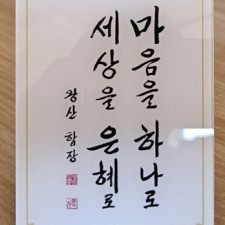 마음을 하나로
세상을 은혜로
왕산 합장